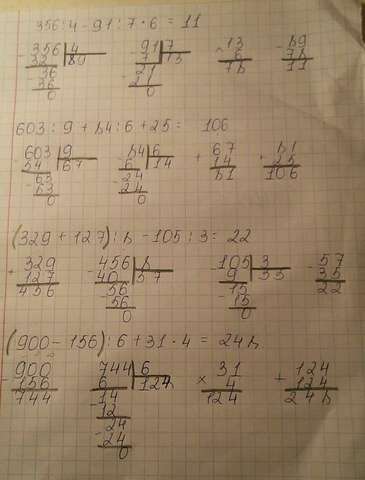 356 : 4 - 91 : 7 · 6 = 11
- 356 | 4 - 91 | 7 × 13 - 89
32 | 89 7 | 13 6 78
- 36 - 21 78 11
36 21
0 0
603 : 9 + 84 : 6 + 25 = 106
- 603 | 9 - 84 | 6 + 67 + 81
54 | 67 6 | 14 14 25
- 63 - 24 81 106
63 24
0 0
(329 + 127) : 8 - 105 : 3 = 22
+ 329 - 456 | 8 - 105 | 3 - 57
127 40 | 57 9 | 35 35
456 - 56 - 15 22
56 15
0 0
(900 - 156) : 6 + 31 · 4 = 248
- 900 - 744 | 6 × 31 + 124
156 6 | 124 4 124
744 - 14 124 248
12
- 24
24
0